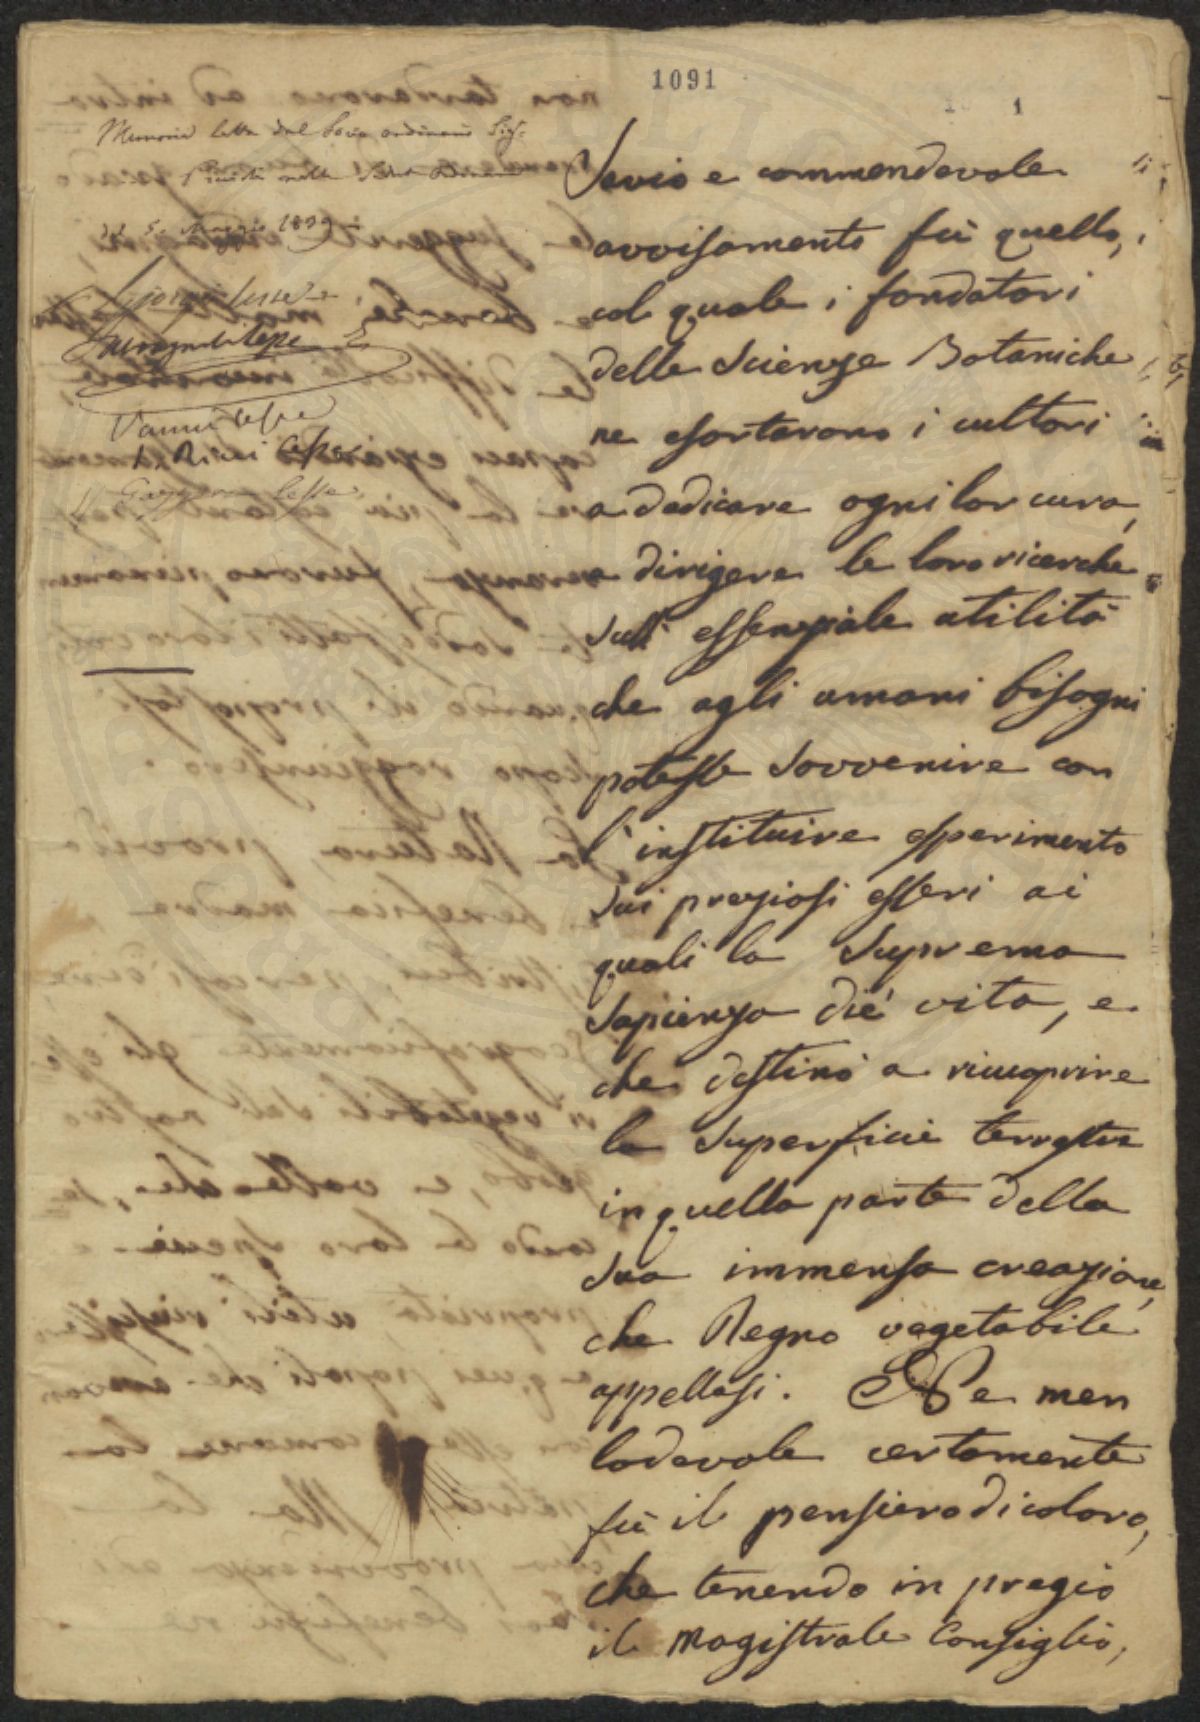 1091
1
Memoria letta dal Socio ordinario Sigr.
nella
del 5. Maggio 1839
Giorgi lesse
lesse
Vannu lesse
Ricci lesse
lesse
Savio e commendevole
avvisamento fù quello,
col quale i fondatori
delle Scienze Botaniche
ne esortarono i cultori
a dedicare ogni lor cura,
e dirigere le loro ricerche
sull' essenziale utilità
che agli umani bisogni
potesse sovvenire con
l'instituire esperimento
sui preziosi esseri ai
quali la Suprema
Sapienza diè vita, e
che destinò a ricuoprire
la superficie terrestre
in quella parte della
sua immensa creazione,
che Regno vegetabile
appellasi. Ne men
lodevole certamente
fù il pensiero di coloro,
che tenendo in pregio
il magistrale Consiglio,